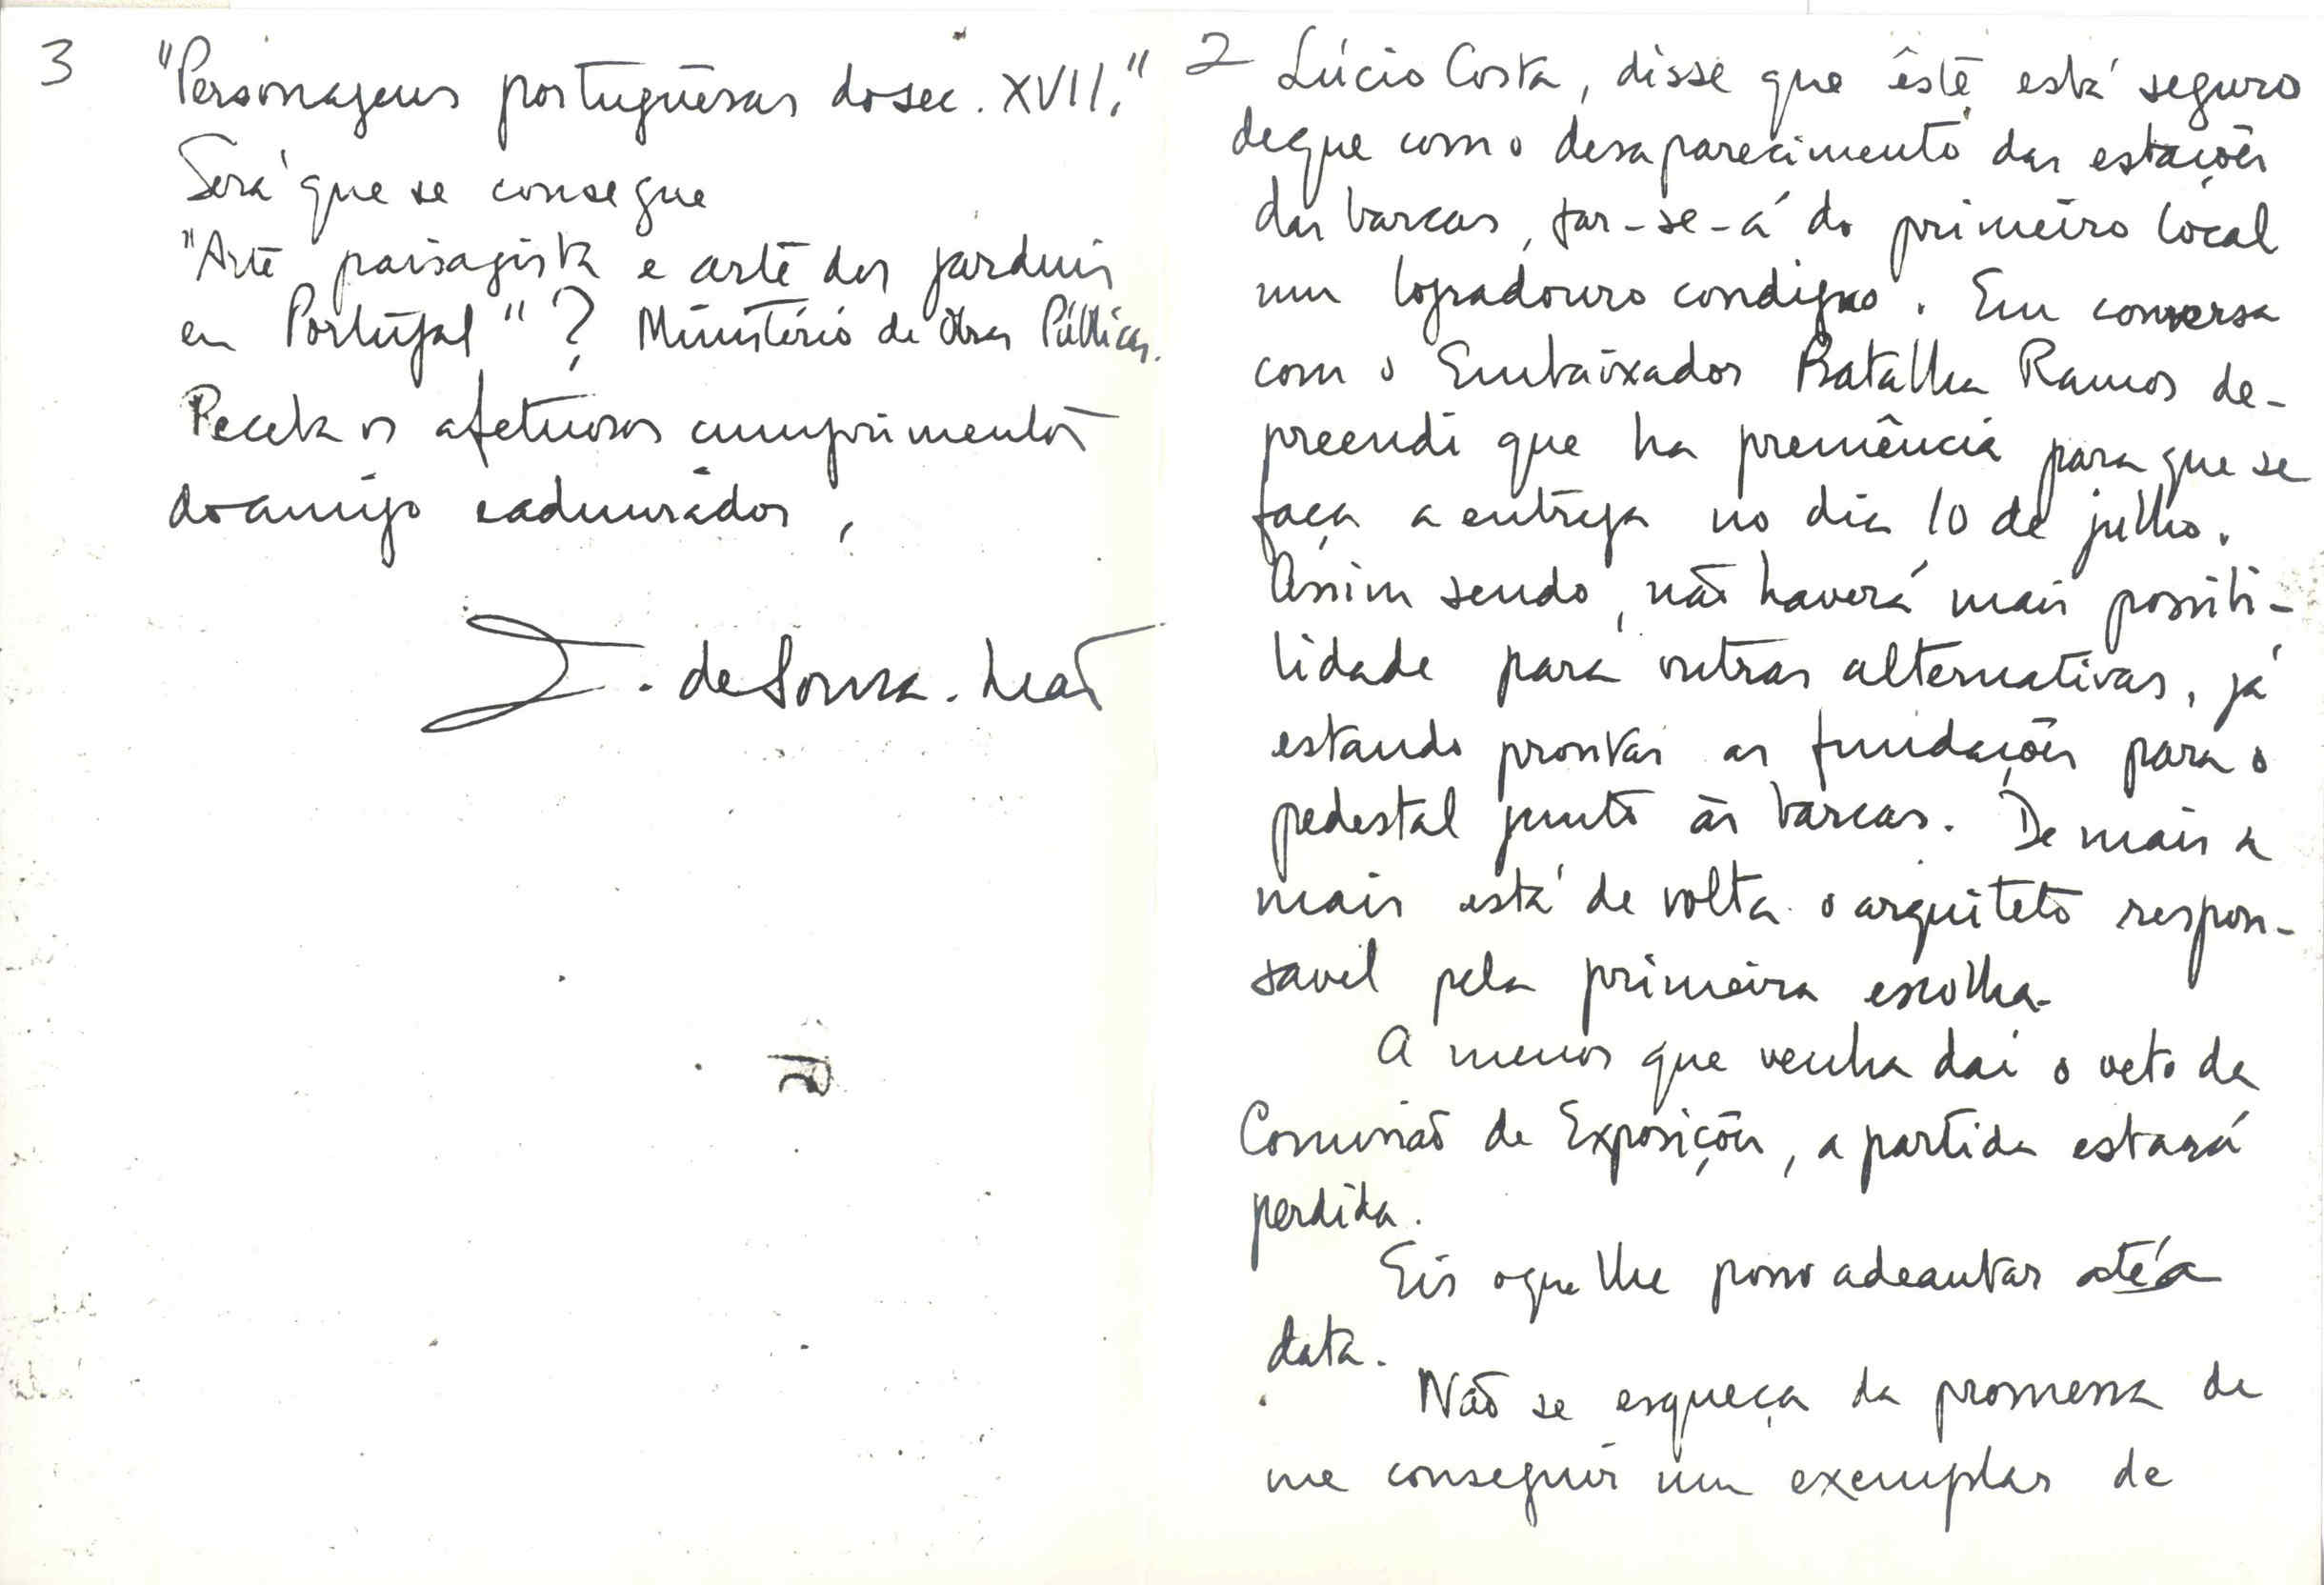 2 Lúcio Costa, disse que êste está seguro
de que com o desaparecimento das estações
das barcas, far-se-á do primeiro local
um logradouro condigno. Em conversa
com o Embaixador Batalha Ramos de-
preendi que ha premência para que se
faça a entrega no dia 10 de julho.
Assim sendo, não haverá mais possibi-
lidade para outras alternativas, já
estando prontas as fundações para o
pedestal junto às barcas. De mais a
mais está de volta o arquiteto respon-
savel pela primeira escolha.
A menos que venha daí o veto da
Comissão de Exposições, a partida estará
perdida.
Eis o que lhe posso adeantar até a
data.
Não se esqueça da promessa de
me conseguir um exemplar de
3 "Personagens portuguêsas do sec. XVII."
Será que se consegue
"Arte paisagista e arte dos jardins
em Portugal"? Ministério de Obras Públicas.
Receba os afetuosos cumprimentos
do amigo e admirador,
J. de Sousa-Leão